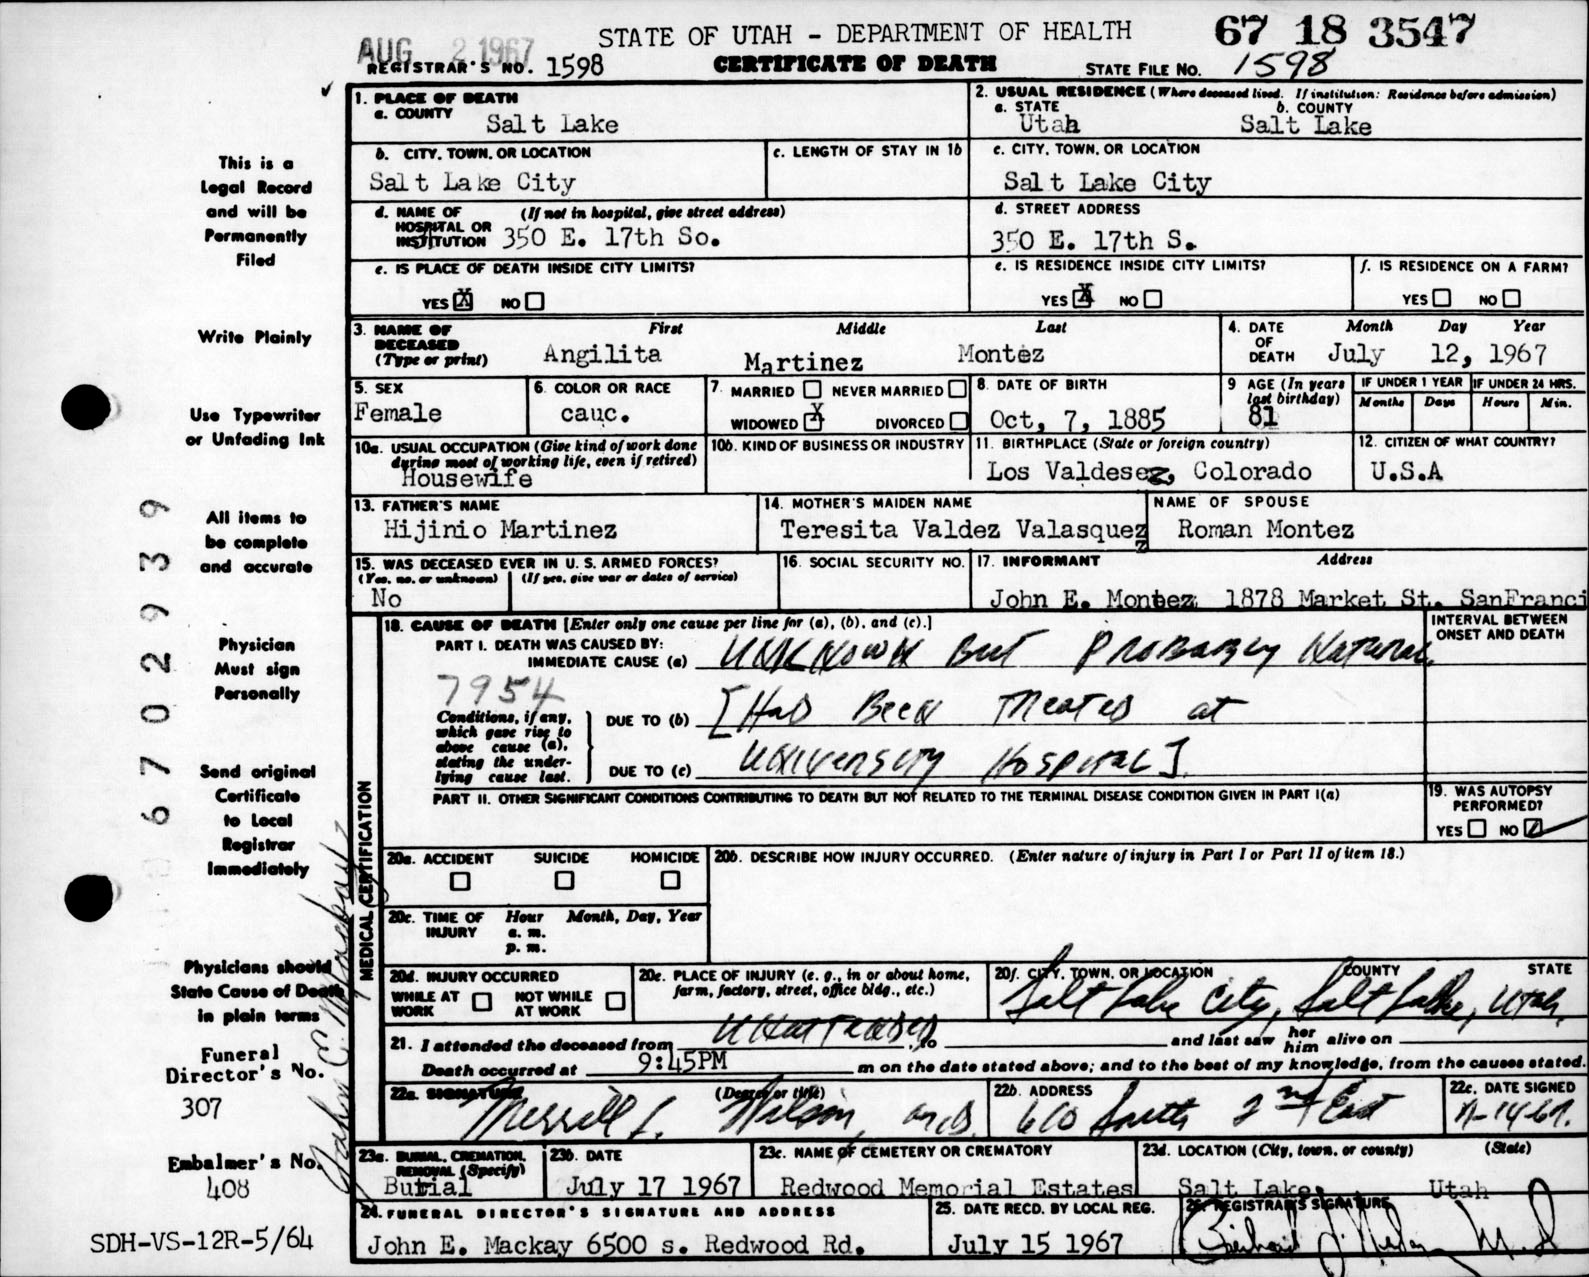 AUG 2 1967
STATE OF UTAH - DEPARTMENT OF HEALTH
67 18 3547
REGISTRAR'S NO. 1598
CERTIFICATE OF DEATH
STATE FILE NO. 1598
This is a
Legal Record
and will be
Permanently
Filed
Write Plainly
Use Typewriter
or Unfading Ink
All items to
be complete
and accurate
Physician
Must sign
Personally
Send original
Certificate
to Local
Registrar
Immediately
Physicians should
State Cause of Death
in plain terms
Funeral
Director's No.
307
Embalmer's No.
408
SDH-VS-12R-5/64
67 02939
John E. Mackay
1. PLACE OF DEATH
a. COUNTY Salt Lake
2. USUAL RESIDENCE (Where deceased lived. If institution: Residence before admission)
a. STATE b. COUNTY
Utah Salt Lake
b. CITY, TOWN, OR LOCATION
Salt Lake City
c. LENGTH OF STAY IN 1b
c. CITY, TOWN, OR LOCATION
Salt Lake City
d. NAME OF (If not in hospital, give street address)
HOSPITAL OR
INSTITUTION 350 E. 17th So.
d. STREET ADDRESS
350 E. 17th S.
e. IS PLACE OF DEATH INSIDE CITY LIMITS?
YES X NO
e. IS RESIDENCE INSIDE CITY LIMITS?
YES X NO
f. IS RESIDENCE ON A FARM?
YES NO
3. NAME OF DECEASED (Type or print)
First Middle Last
Angilita Martinez Montez
4. DATE OF DEATH
Month Day Year
July 12, 1967
5. SEX
Female
6. COLOR OR RACE
cauc.
7. MARRIED NEVER MARRIED
WIDOWED X DIVORCED
8. DATE OF BIRTH
Oct, 7, 1885
9 AGE (In years last birthday)
81
IF UNDER 1 YEAR
Months Days
IF UNDER 24 HRS.
Hours Min.
10a. USUAL OCCUPATION (Give kind of work done during most of working life, even if retired)
Housewife
10b. KIND OF BUSINESS OR INDUSTRY
11. BIRTHPLACE (State or foreign country)
Los Valdesez, Colorado
12. CITIZEN OF WHAT COUNTRY?
U.S.A
13. FATHER'S NAME
Hijinio Martinez
14. MOTHER'S MAIDEN NAME
Teresita Valdez Valasquez
z
NAME OF SPOUSE
Roman Montez
15. WAS DECEASED EVER IN U. S. ARMED FORCES?
(Yes, no, or unknown) (If yes, give war or dates of service)
No
16. SOCIAL SECURITY NO.
17. INFORMANT Address
John E. Montez 1878 Market St. SanFranci
18. CAUSE OF DEATH [Enter only one cause per line for (a), (b), and (c).]
INTERVAL BETWEEN ONSET AND DEATH
PART I. DEATH WAS CAUSED BY:
IMMEDIATE CAUSE (a) UNKNOWN But Probably Natural
7954
Conditions, if any, which gave rise to above cause (a), stating the underlying cause last.
DUE TO (b) [Had Been Treated at
DUE TO (c) University Hospital]
PART II. OTHER SIGNIFICANT CONDITIONS CONTRIBUTING TO DEATH BUT NOT RELATED TO THE TERMINAL DISEASE CONDITION GIVEN IN PART I(a)
19. WAS AUTOPSY PERFORMED?
YES NO ✓
MEDICAL CERTIFICATION
20a. ACCIDENT SUICIDE HOMICIDE
20b. DESCRIBE HOW INJURY OCCURRED. (Enter nature of injury in Part I or Part II of item 18.)
20c. TIME OF INJURY
Hour Month, Day, Year
a. m.
p. m.
20d. INJURY OCCURRED
WHILE AT WORK NOT WHILE AT WORK
20e. PLACE OF INJURY (e. g., in or about home, farm, factory, street, office bldg., etc.)
20f. CITY, TOWN, OR LOCATION COUNTY STATE
Salt Lake City, Salt Lake, Utah.
21. I attended the deceased from Unattended, to and last saw her him alive on
Death occurred at 9:45PM m on the date stated above; and to the best of my knowledge, from the causes stated.
22a. SIGNATURE (Degree or title)
Merrill L. Wilson, M.D.
22b. ADDRESS
610 South 2nd East
22c. DATE SIGNED
7-14-67.
23a. BURIAL, CREMATION, REMOVAL (Specify)
Burial
23b. DATE
July 17 1967
23c. NAME OF CEMETERY OR CREMATORY
Redwood Memorial Estates
23d. LOCATION (City, town, or county) (State)
Salt Lake, Utah
24. FUNERAL DIRECTOR'S SIGNATURE AND ADDRESS
John E. Mackay 6500 s. Redwood Rd.
25. DATE RECD. BY LOCAL REG.
July 15 1967
26. REGISTRAR'S SIGNATURE